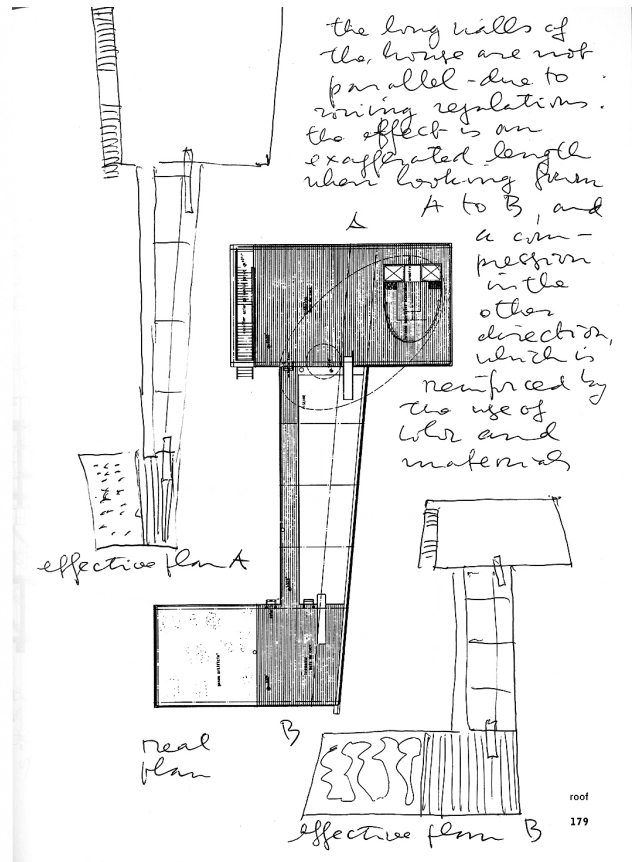 the long walls of
the house are not
parallel - due to
zoning regulations.
the effect is an
exaggerated length
when looking from
A to B, and
a com-
pression
in the
other
direction,
which is
reinforced by
the use of
color and
materials
A
effective plan A
B
real
plan
effective plan B
roof
179